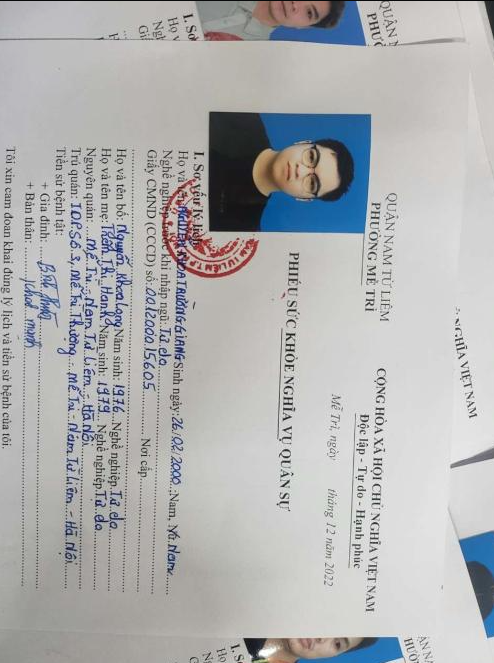 QUẬN NAM TỪ LIÊM
PHƯỜNG MỄ TRÌ
CỘNG HÒA XÃ HỘI CHỦ NGHĨA VIỆT NAM
Độc lập - Tự do - Hạnh phúc
Mễ Trì, ngày tháng 12 năm 2022
PHIẾU SỨC KHỎE NGHĨA VỤ QUÂN SỰ
I. Sơ yếu lý lịch
Họ và TRƯỜNG GIANG Sinh ngày: 26.02.2000; Nam, Nữ: Nam
Nghề nghiệp trước khi nhập ngũ: Tự do
Giấy CMND (CCCD) số: 001200015605 Nơi cấp
Họ và tên bố: Nguyễn Khoa Long Năm sinh: 1976 Nghề nghiệp: Tự do
Họ và tên mẹ: Trần Thị Hạnh Năm sinh: 1979 Nghề nghiệp: Tự do
Nguyên quán: Mễ Trì - Nam Từ Liêm - Hà Nội
Trú quán: TDP Số 3, Mễ Trì Thượng - Mễ Trì - Nam Từ Liêm - Hà Nội
Tiền sử bệnh tật:
+ Gia đình: Bình thường
+ Bản thân: khoẻ mạnh
Tôi xin cam đoan khai đúng lý lịch và tiền sử bệnh của tôi.
NGHĨA VIỆT NAM
QUẬN N
PHƯỜ
I. Sơ
Họ v